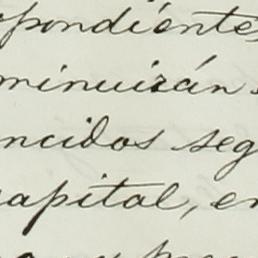 spondientes
minuirán
ncidos seg
capital, en